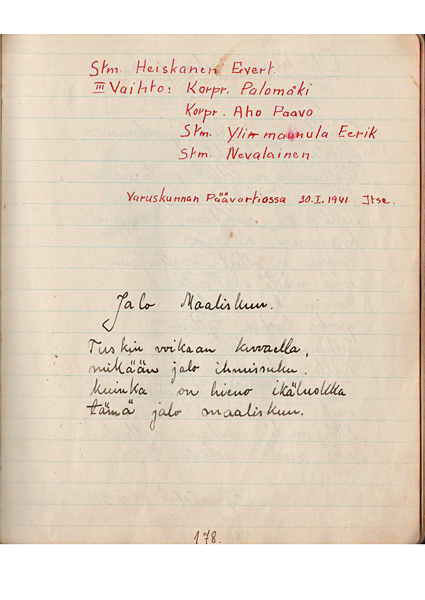 Stm. Heiskanen Evert.
III Vaihto: Korpr. Palomäki
Korpr. Aho Paavo
Stm. Yli-maunula Eerik
Stm. Nevalainen
Varuskunnan Päävartiossa 30.I.1941. Itse.
Jalo Maaliskuu.
Tuskin voikaan kuvaella,
mikään jalo ihmissuku.
kuinka on hieno ikäluokka
tämä jalo maaliskuu.
178.